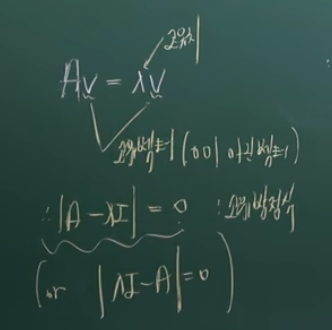 고유치
Av = λv
고유벡터 (0이 아닌 벡터)
∴ |A - λI| = 0 : 고유방정식
(or |λI - A| = 0)